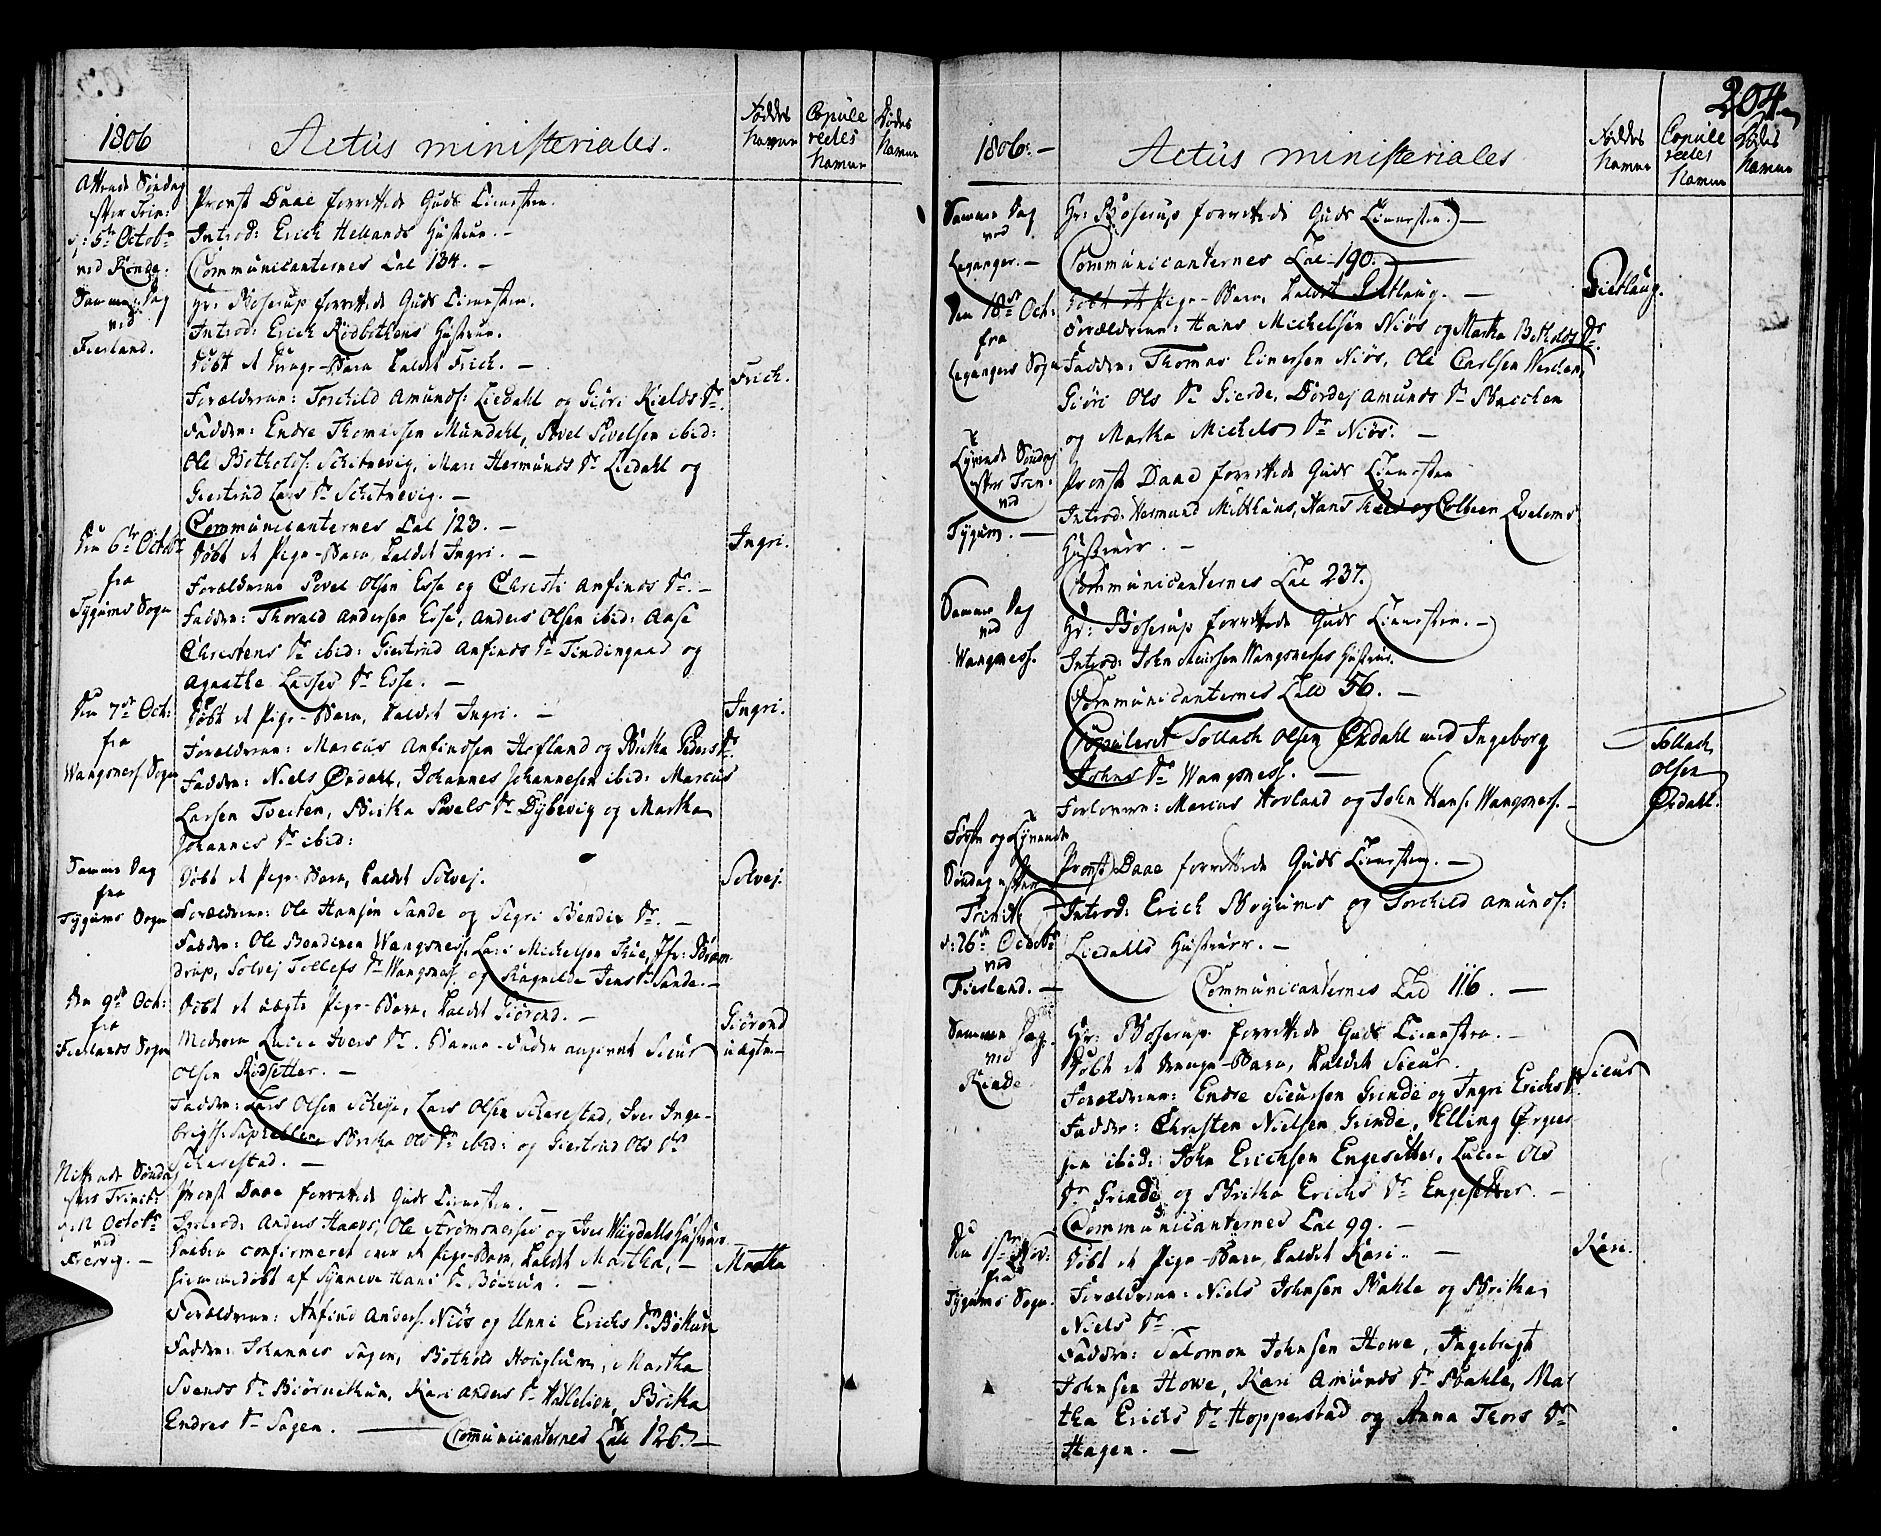 1806
Actus ministeriales.
Føddes Navne
Copule redes Navne
Dødes Navne
Attende Søndag
efter Trin:
d: 5te Octobr
ved Rinde.
Provst Daae forrettede Guds Tienesten.
Introd: Erich Hellands Hustrue. -
Communicanternes Tal 134. -
Samme Dag
ved
Fiesland.
Hr: Bøserup forrettede Guds Tienesten.
Introd: Erich Rødbethens Hustrue.
Døbt et Drenge-Barn kaldet Frich. -
Frich.
Forældrene: Torchild Amunds: Liedahl og Giøri Kields Dr.
Faddere: Endre Thomessen Mundahl, Povel Povelsen ibid:
Ole Botholds: Schitnevig, Mari Hermunds Dr Liedahl og
Giertrud Lars Dr Schitnevig. -
Communicanternes Tal 123. -
Den 6te Octobr
fra
Tygums Sogn
Døbt et Pige-Barn, kaldet Ingri. -
Ingri.
Forældrene Povel Olsen Esse og Christi Anfinds Dr. -
Faddere: Thorald Andersen Esse, Anders Olsen ibid: Aase
Christens Dr ibid: Giertrud Anfinds Dr Tindingaard og
Agnethe Lasses Dr Esse. -
Den 7de Oct:
fra
Wangsness Sogn
Døbt et Pige-Barn, kaldet Ingri. -
Ingri.
Forældrene: Marcus Anfindsen Hofland og Britha Peders Dr.
Faddere: Niels Ørdahl, Johannes Johannesen ibid: Marcus
Larsen Tveiten, Britha Povels Dr Dybevig og Martha
Johannes Dr ibid:
Samme Dag
fra
Tygums Sogn
Døbt et Pige-Barn, kaldet Solvej.
Solvej.
Forældrene: Ole Hansen Sande og Sigri Bendix Dr. -
Faddere: Ole Bendixen Wangsness, Lars Michelsen Thue, Jfr: Brøm-
drup, Solvej Tollefs Dr Wangsness og Ragnilde Jens Dr Sande. -
Den 9de Oct:
fra
Fieslands Sogn
Døbt et uægte Pige-Barn, kaldet Giørond. -
Giørond
uægte
Moderen Lucie Ivers Dr. Barne-Fader angivet Siur
Olsen Rødsetter. -
Faddere: Lars Olsen Scheje, Lars Olsen Scharestad, Iver Inge-
brigts: Suphellen, Britha Ols Dr ibid: og Giertrud Ols Dr
Scharestad. -
Nittende Søndag
efter Trinit:
d: 12 Octobr
ved
Fresvig. -
Provst Daae forrettede Guds Tienesten. -
Introd: Anders Haaves, Ole Strømmesses og Iver Wigdals Hustruer.
Daaben confirmeret over et Pige-Barn, kaldet Martha, -
Martha
hiemmedøbt af Synneve Hans Dr Bøthun. -
Forældrene: Anfind Anders: Niøs og Unni Erichs Dr Bøthun
Faddere: Johannes Sagen, Bothold Houglum, Martha
Svends Dr Biørnethun, Kari Anders Dr Hallelien, Britha
Endres Dr Sagen. -
Communicanternes Tal 126. -
204.
1806. -
Actus ministeriales
Føddes Navne
Copule redes Navne
Dødes Navne
Samme Dag
ved
Leganger. -
Hr: Bøserup forrettede Guds Tienesten. -
Communicanternes Tal 190. -
Den 18de Oct:
fra
Legangers Sogn
Døbt et Pige-Barn, kaldet Gietlaug. -
Gietlaug.
Forældrene: Hans Michelsen Niøs og Martha Botholds Dr.
Faddere: Thomas Einersen Niøs, Ole Carlsen Werken,
Giøri Ols Dr Gierde, Dordej Amunds Dr Bacchen
og Martha Michels Dr Niøs. -
Tyvende Søndag
efter Trin:
ved
Tygum. -
Provst Daae forrettede Guds Tienesten
Introd: Hermund Mitthuns, Hans Thues og Colbeen Qvalems
Hustruer. -
Communicanternes Tal 237.
Samme Dag
ved
Wangness.
Hr: Bøserup forrettede Guds Tienesten. -
Introd: John Siursen Wangsnesses Hustrue.
Communicanternes Tal 56. -
Copuleret Tollach Olsen Ørdahl med Ingeborg
Johns Dr Wangsness. -
Tollach
Olsen
Ørdahl.
Forlovere: Marcus Hovland og John Hans: Wangsness. -
Første og Tyvende
Søndag efter
Trinit:
d: 26de Octobr
ved
Fiesland. -
Provst Daae forrettede Guds Tienesten. -
Introd: Erich Bøyums og Torchild Amunds:
Liedalls Hustruer. -
Communicanternes Tal 116. -
Samme Dag
ved
Rinde.
Hr: Bøserup forrettede Guds Tienesten. -
Døbt et Drenge-Barn, kaldet Siur.
Siur
Forældrene: Endre Siursen Grinde og Ingri Erichs Dr.
Faddere: Christen Nielsen Grinde, Elling Ørger
sen ibid: John Erichsen Engesetter, Lucie Ols
Dr Grinde og Britha Erichs Dr Engesetter. -
Communicanternes Tal 99. -
Den 1ste Nov:
fra
Tygums Sogn.
Døbt et Pige-Barn, kaldet Kari. -
Kari.
Forældrene: Niels Johnsen Bahle og Britha
Niels Dr.
Faddere: Salomon Johnsen Howe, Ingebrigt
Johnsen Howe, Kari Amunds Dr Bahle, Mar
tha Erichs Dr Hopperstad og Anna Thors Dr
Hagen. -